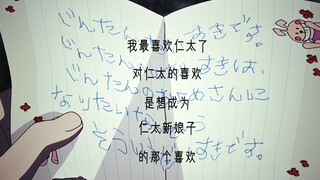 じんたん すきです。
我最喜欢仁太了
じんたん すきは、
对仁太的喜欢
じんたんの さんに
是想成为
なりたい
仁太新娘子
そうい すきです。
的那个喜欢